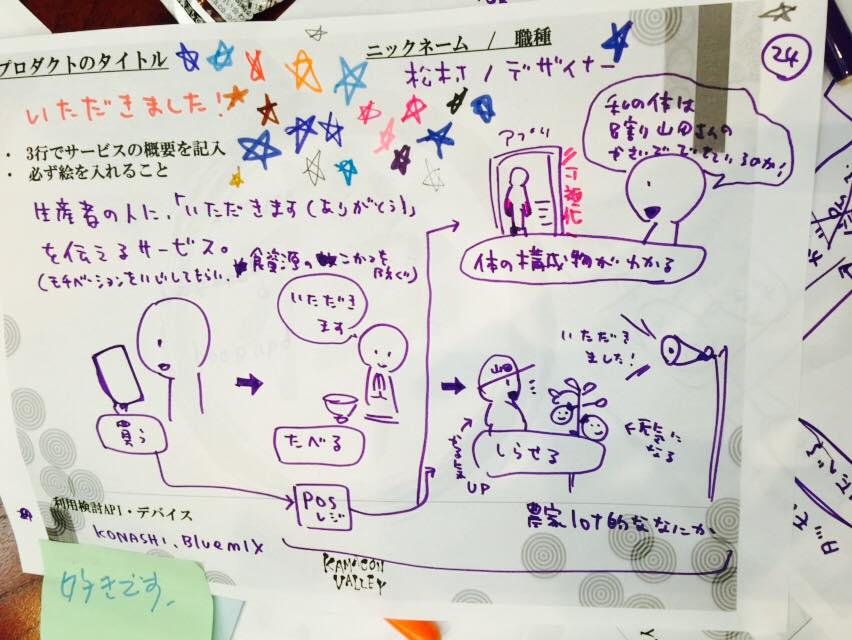 プロダクトのタイトル
ニックネーム / 職種
24
いただきました!
松村 / デザイナー
・ 3行でサービスの概要を記入
・ 必ず絵を入れること
生産者の人に、「いただきます(ありがとう)」
を伝えるサービス。
(モチベーションをいじしてもらい、食資源のこかつを防ぐ)
アプリ
私の体は
8割山田さんの
やさいでできているのか!
体の構成物がわかる
いただき
ます
買う
たべる
いただき
ました!
山田
しらせる
やるき UP
←元気に
なる
POS
レジ
利用検討API・デバイス
KONASHI、Bluemix
農家IoT的ななにか
KAMOCON
VALLEY
好きです。